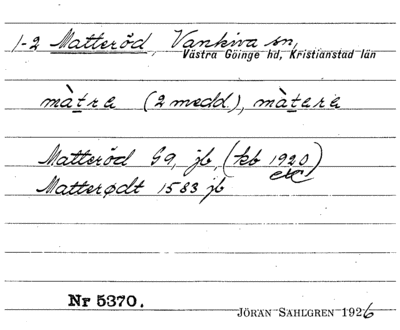 1-2 Matteröd Vankiva sn,
Västra Göinge hd, Kristianstad län
màtra (2 medd.), màtara
Matteröd 59, jb, (kb 1920)
etc
Matterødt 1583 jb
Nr 5370.
JÖRAN SAHLGREN 1926